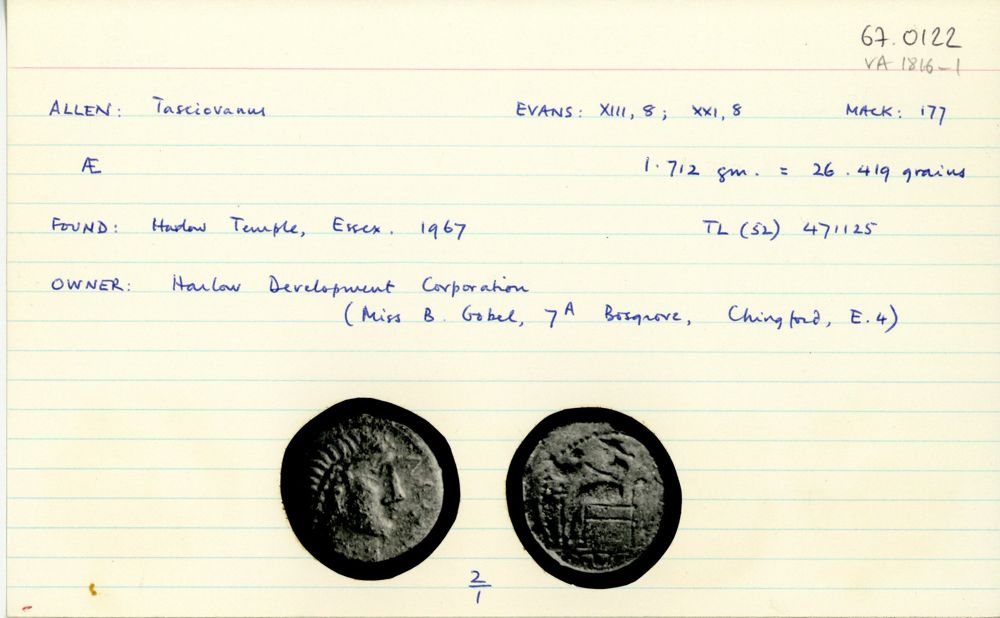 67.0122
VA 1816-1
ALLEN: Tasciovanus EVANS: XIII, 8; XXI, 8 MACK: 177
Æ 1.712 gm. = 26.419 grains
FOUND: Harlow Temple, Essex. 1967 TL (52) 471125
OWNER: Harlow Development Corporation
(Miss B. Gobel, 7A Bosgrove, Chingford, E.4)
2/1